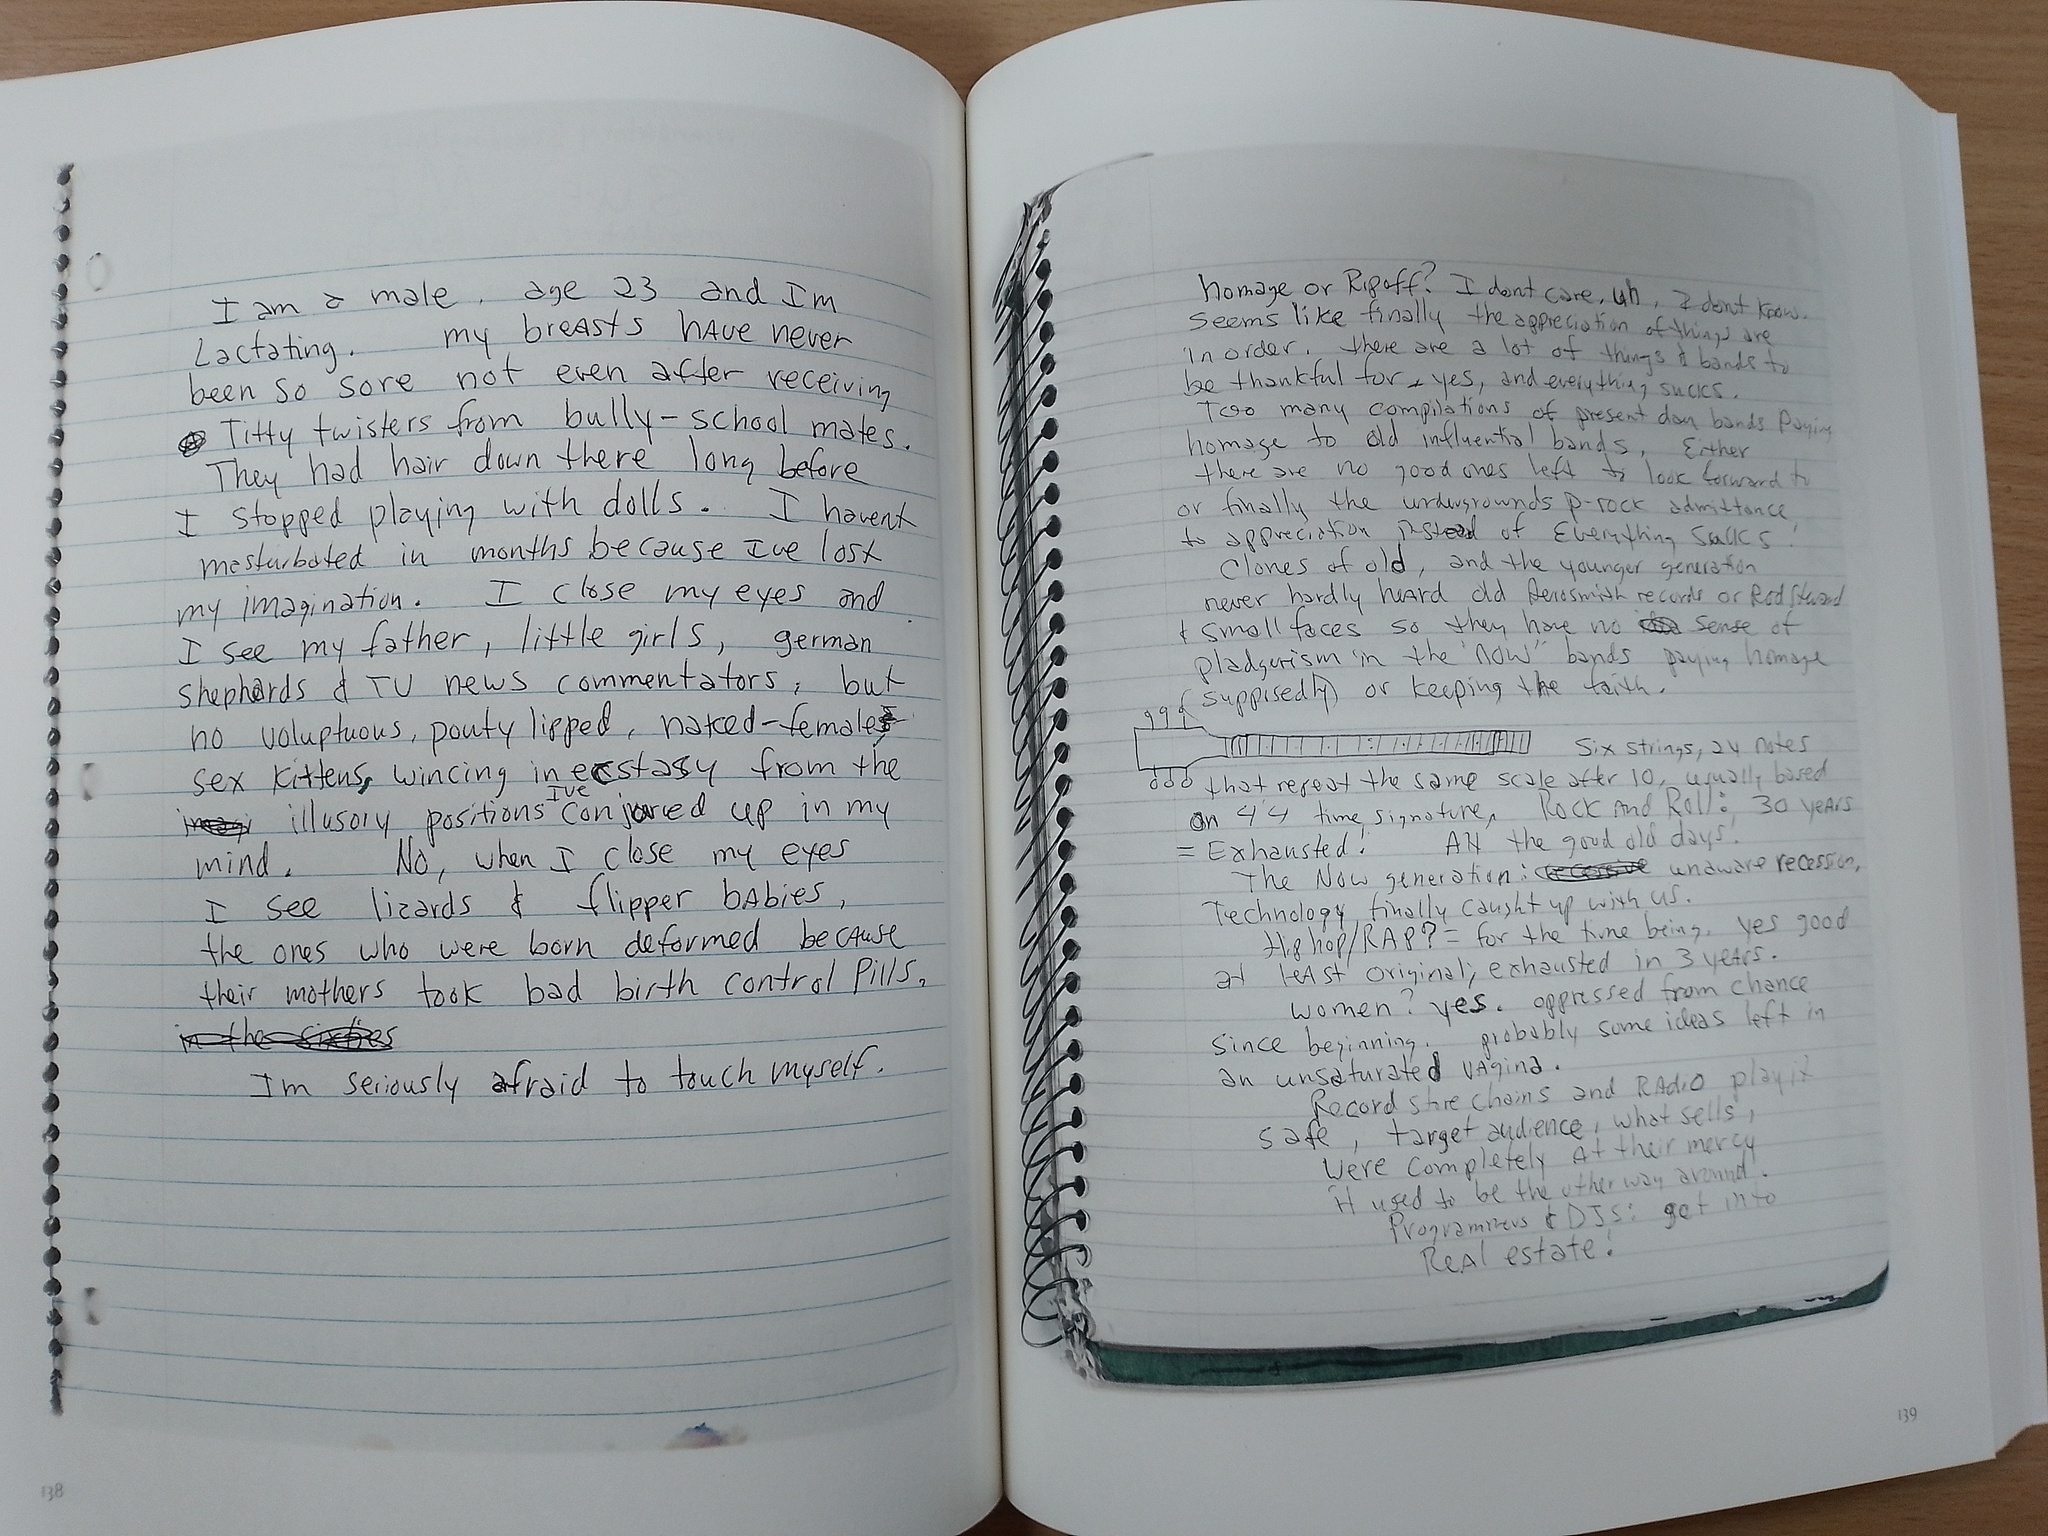 I am a male. age 23 and Im
Lactating. my breasts have never
been so sore not even after receiving
Titty twisters from bully-school mates.
They had hair down there long before
I stopped playing with dolls. I havent
masturbated in months because Ive lost
my imagination. I close my eyes and
I see my father, little girls, german
shepherds & TV news commentators, but
no voluptuous, pouty lipped, naked-female
sex kittens, wincing in ecstasy from the
illusory positions Ive conjured up in my
mind. No, when I close my eyes
I see lizards & flipper babies,
the ones who were born deformed because
their mothers took bad birth control pills.
in the sixties
Im seriously afraid to touch myself.
138
homage or Ripoff? I dont care, uh, I dont know.
Seems like finally the appreciation of things are
in order. there are a lot of things & bands to
be thankful for, yes, and everything sucks.
Too many compilations of present day bands Paying
homage to old influential bands, Either
there are no good ones left to look forward to
or finally the undergrounds p-rock admittance
to appreciation instead of Everything Sucks!
Clones of old, and the younger generation
never hardly heard old Aerosmith records or Rod Steward
& Small faces so they have no sense of
pladgurism in the "NOW" bands paying homage
(supposedly) or keeping the faith.
Six strings, 24 notes
that repeat the same scale after 10, usually based
on 4'4 time signature, Rock And Roll: 30 years
= Exhausted! Ah the good old days!
The Now generation: recessive unaware recession,
Technology finally caught up with us.
Hip hop/RAP? = for the time being. yes good
at leAst original, exhausted in 3 years.
women? yes. oppressed from chance
since beginning. probably some ideas left in
an unsaturated vagina.
Record store chains and RAdiO play it
safe, target audience, what sells,
Were completely At their mercy
it used to be the other way around!
Programmers & DJs: get into
ReAl estate!
139